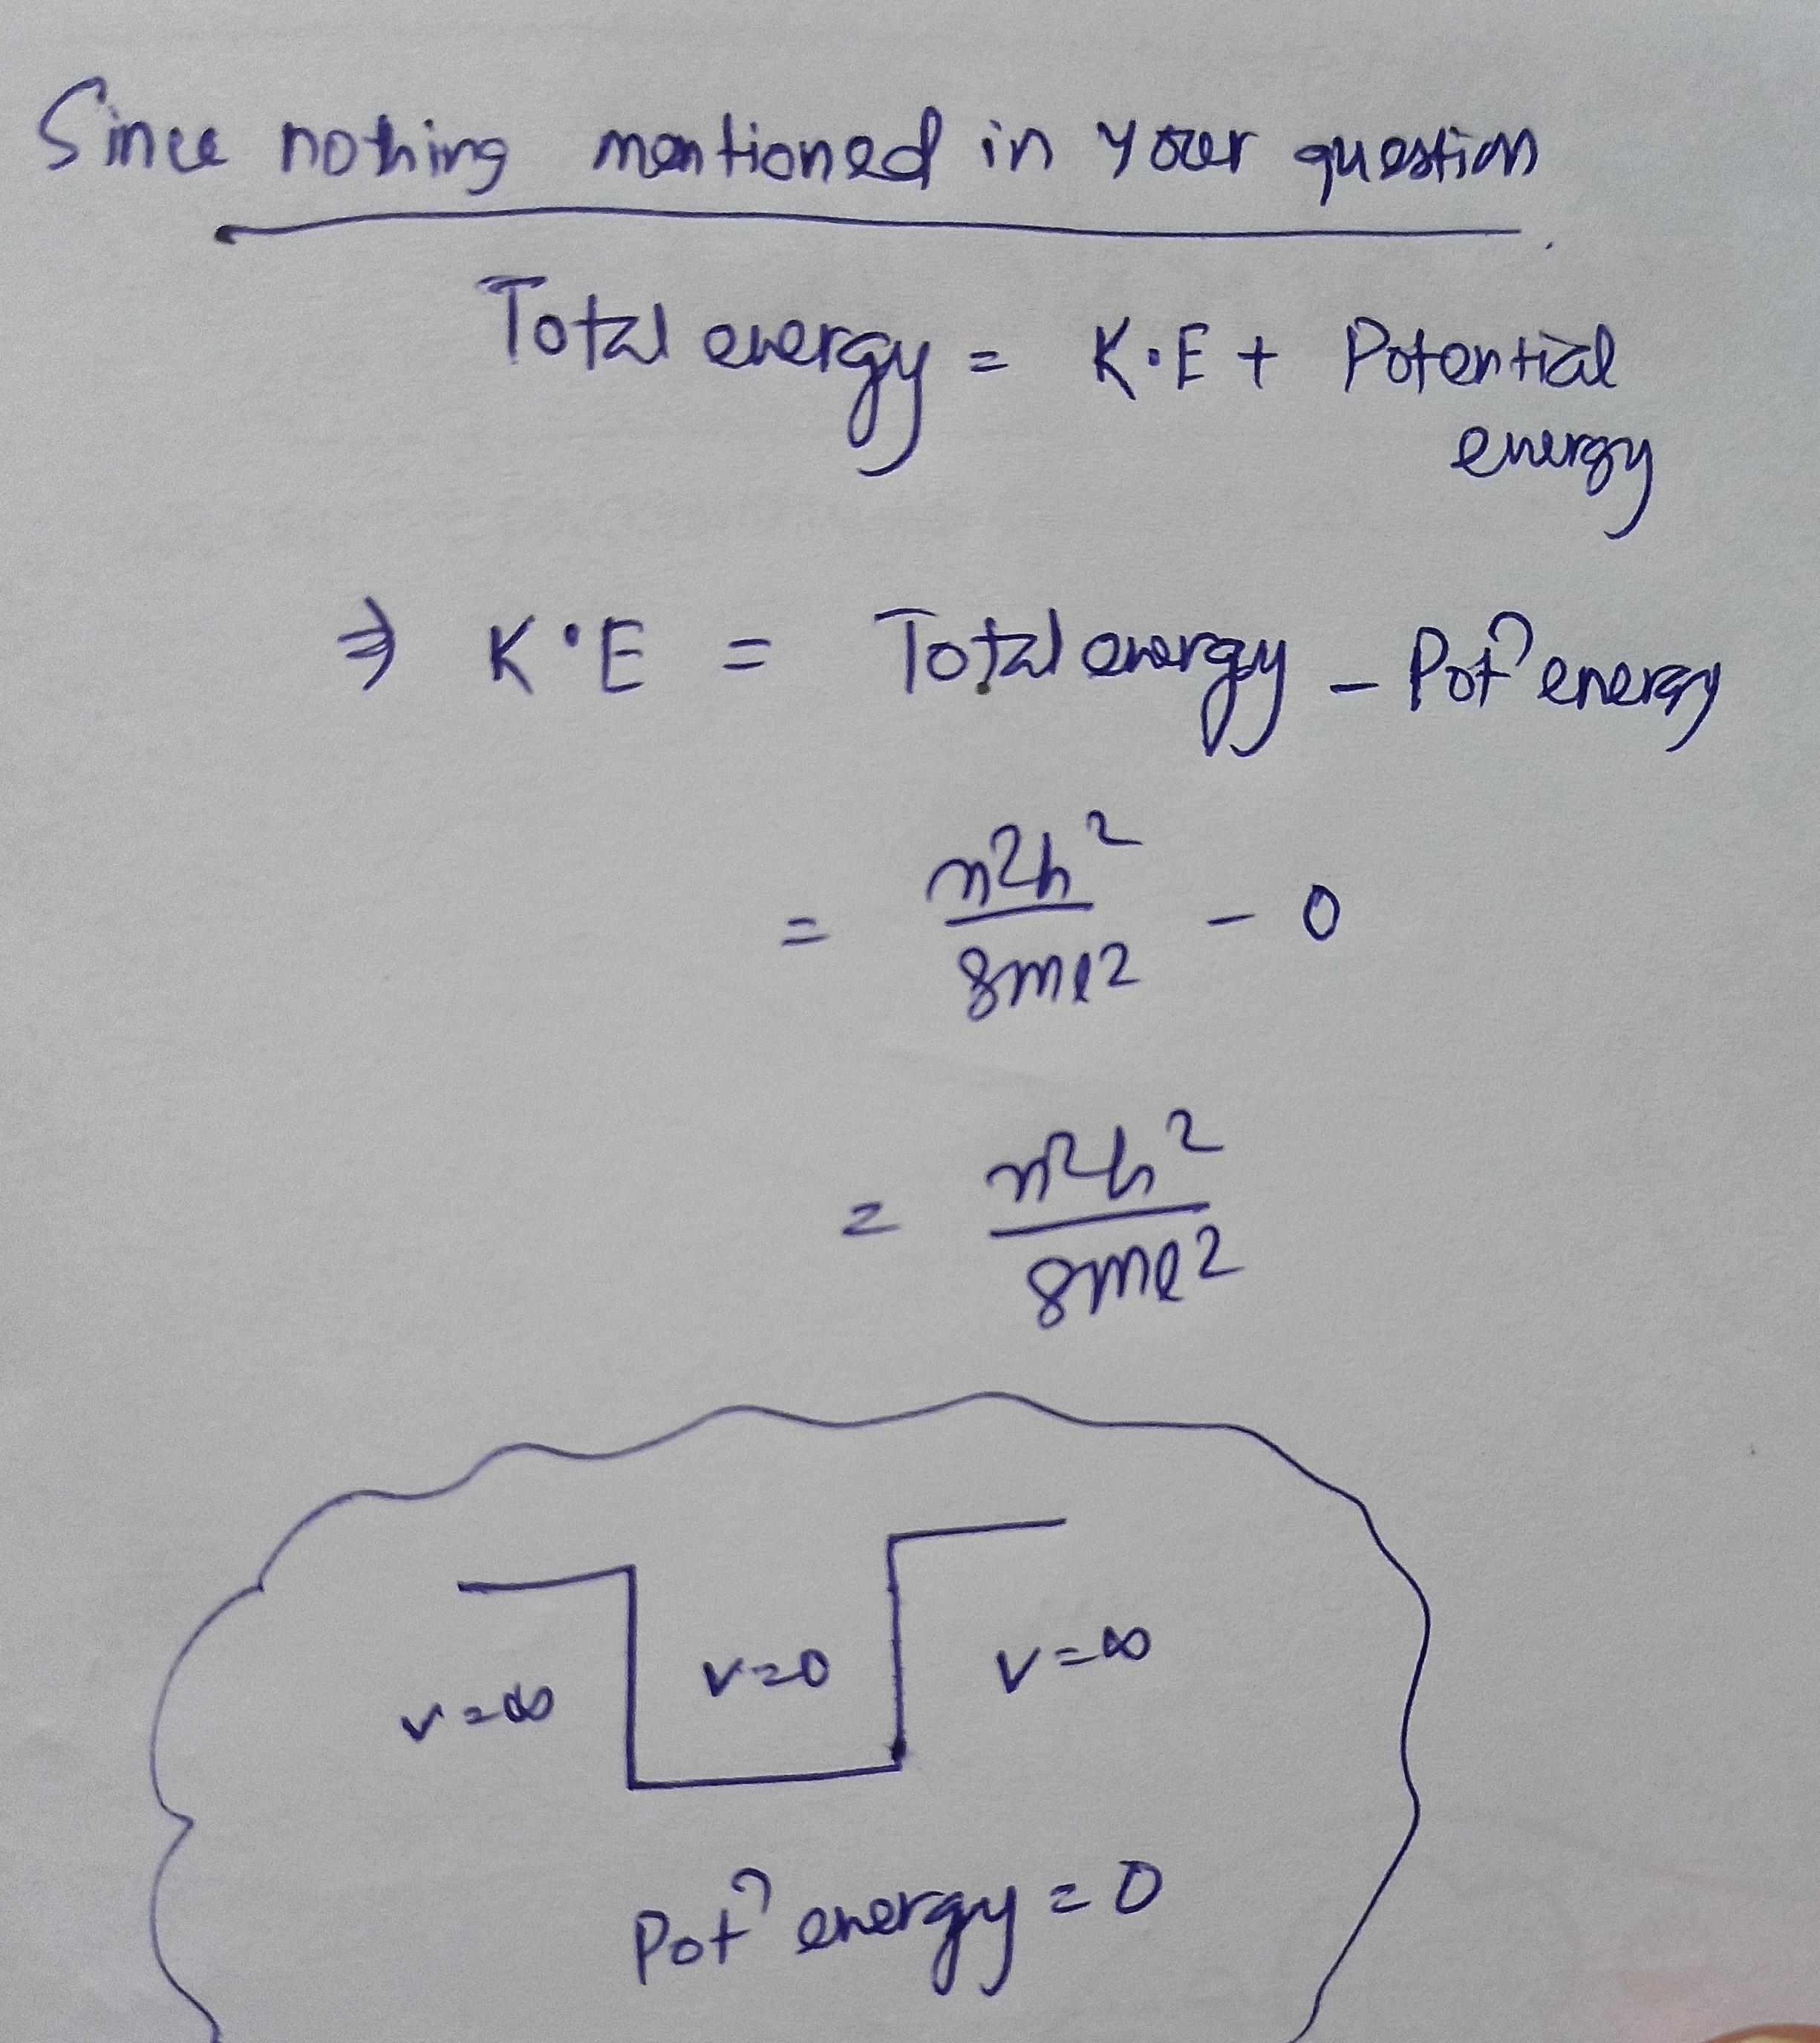 Since nothing mentioned in your question
Total energy = K.E + Potential
energy
⇒ K.E = Total energy - Pot? energy
= n²h² / 8ml² - 0
= n²h² / 8ml²
V=∞ V=0 V=∞
Pot? energy = 0